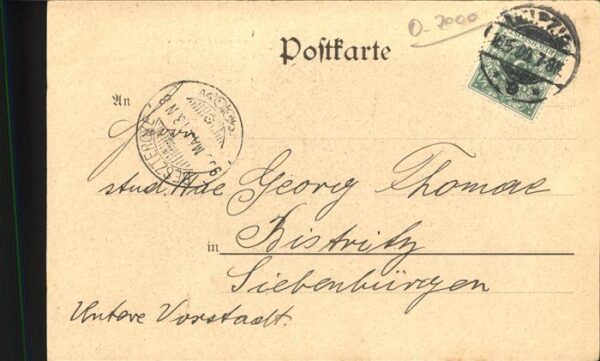 O-7000
Postkarte
An
Herrn
stud. Georg Thomae
in Bistritz
Siebenbürgen
Untere Vorstadt.